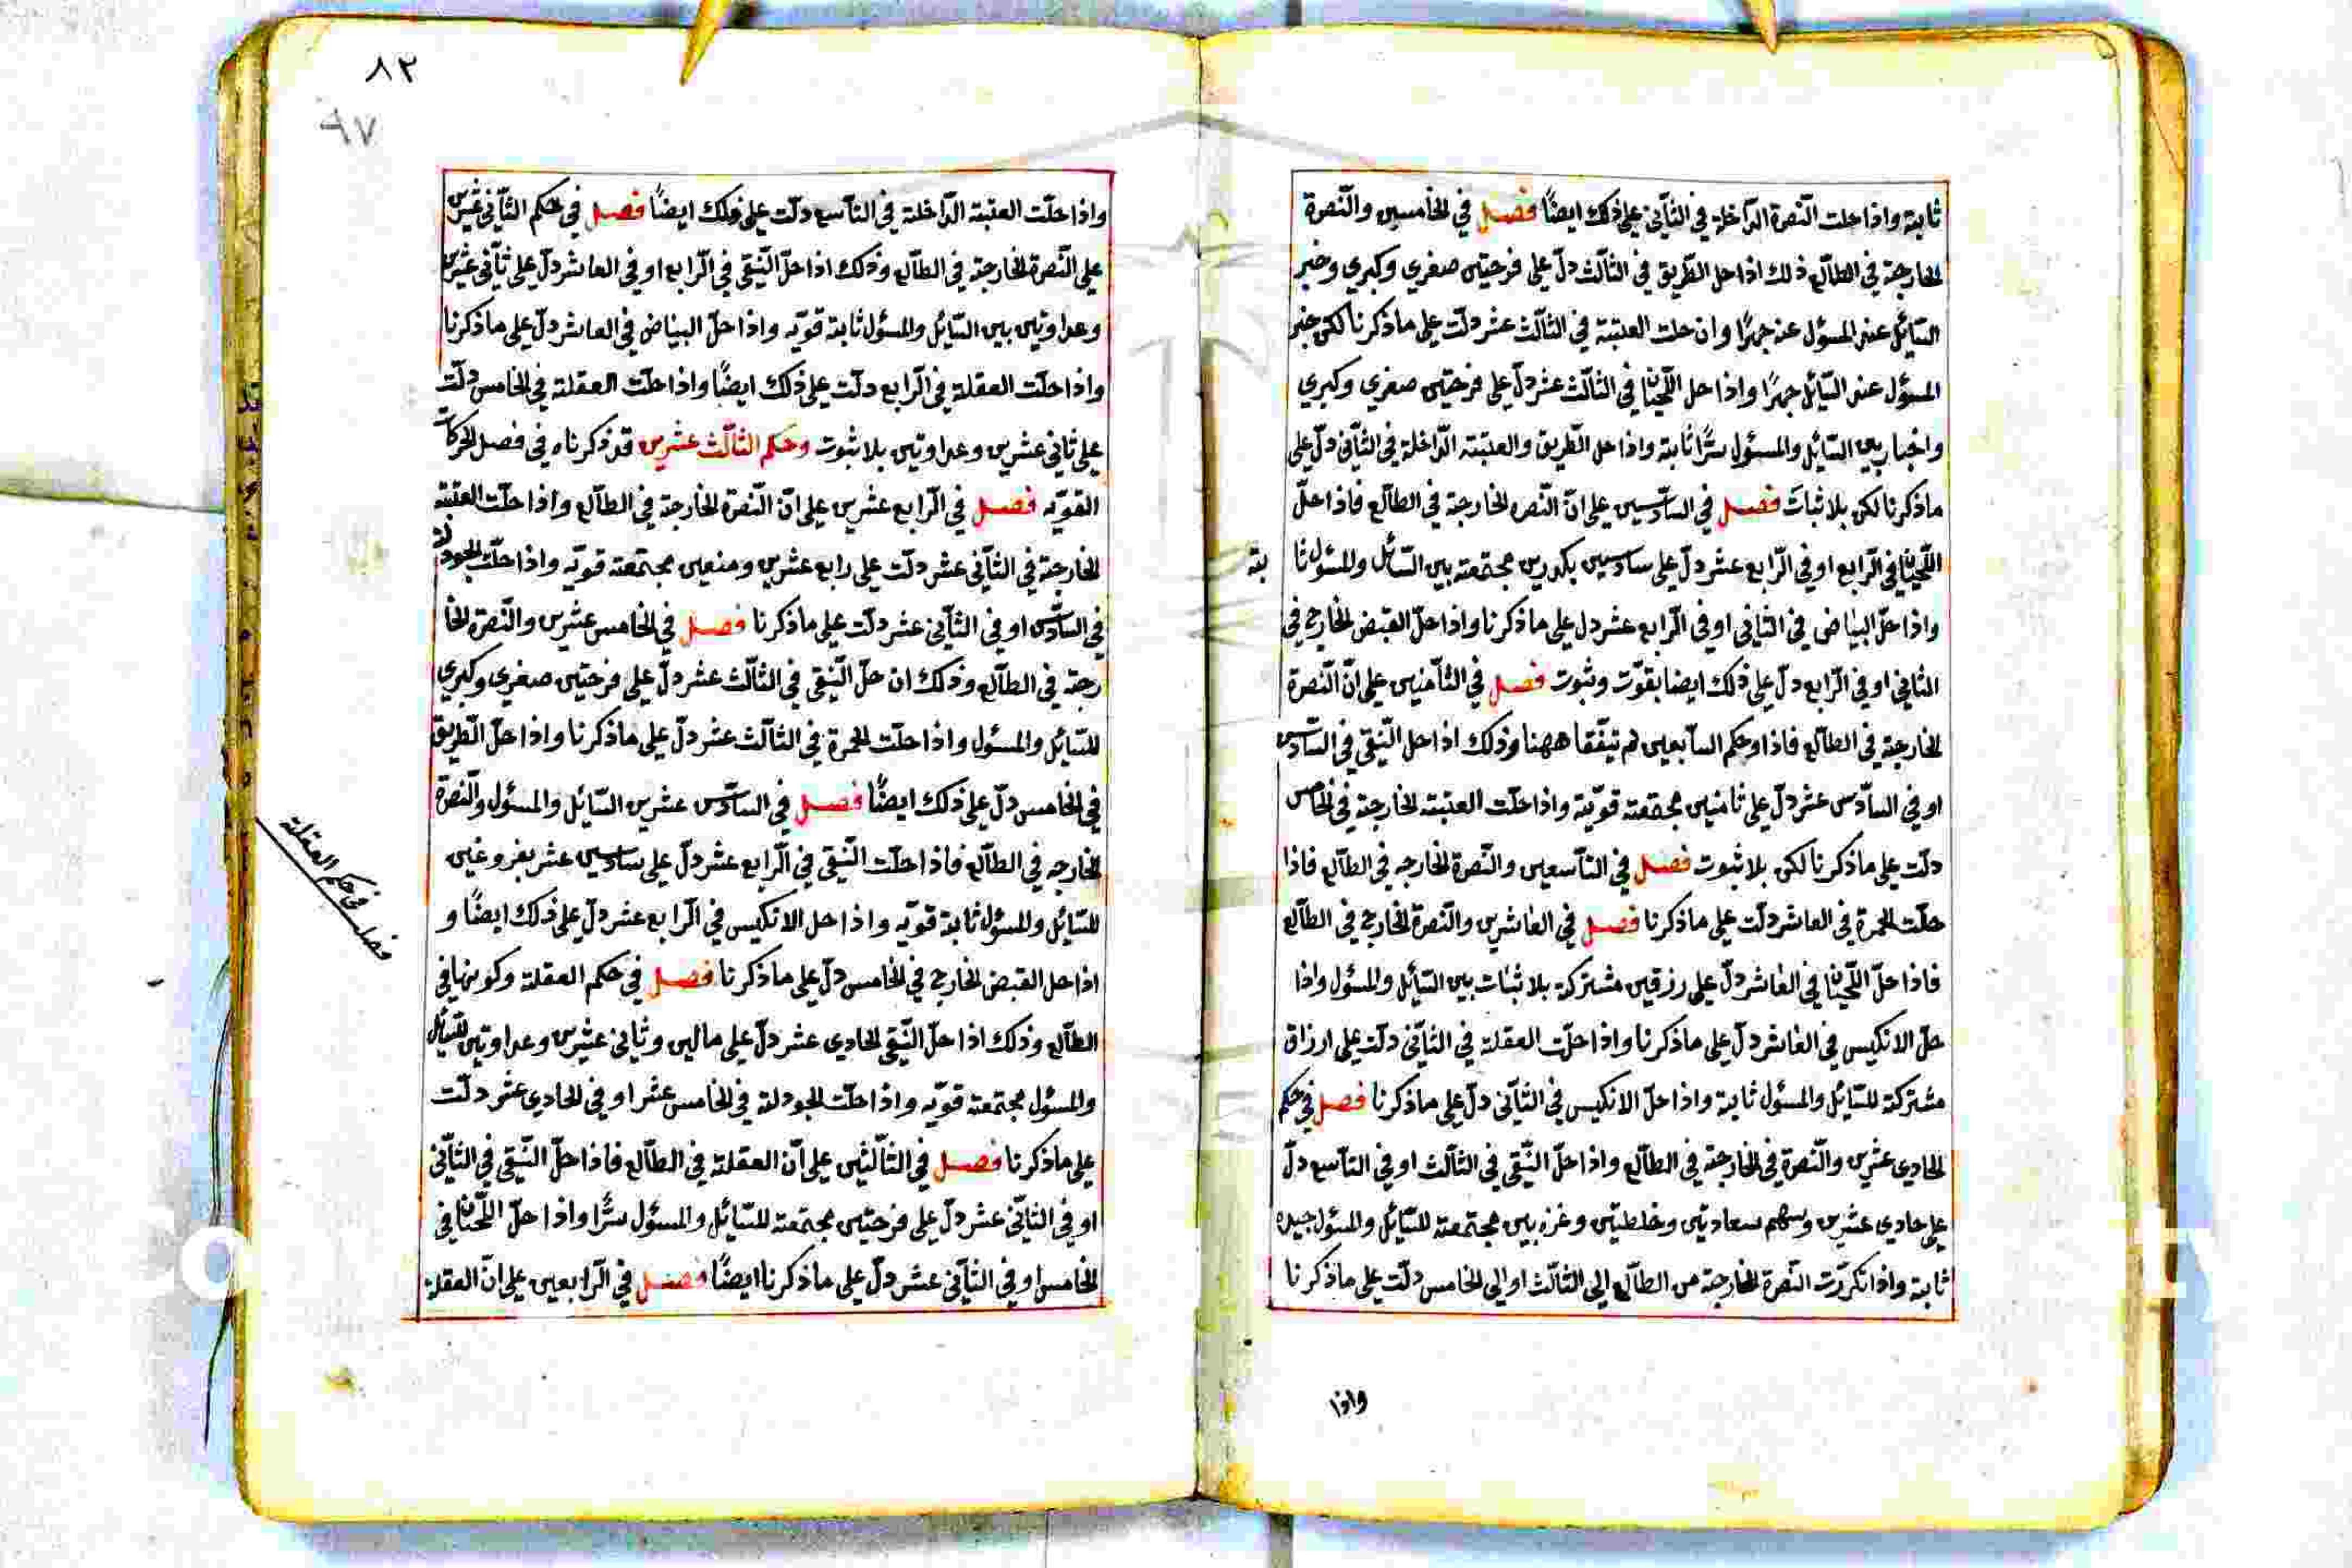 ثابتة واذا حلت النّصرة الدّاخلة في الثّاني على ذلك ايضًا فصل في الخامسين والنّصرة
الخارجة في الطالع ذلك اذا حل الطّريق في الثالث دلّ على فرحتين صغرى وكبرى وخبر
السّائل عند المسؤل عنه جهرًا وان حلت العتبة في الثّالث عشر دلّت على ما ذكرنا لكن خبر
المسؤل عند السّائل جهرًا واذا حل اللّحيان في الثالث عشر دلّ على فرحتين صغرى وكبرى
واخبار بين السّائل والمسؤل سرًّا ثابتة واذا حل الطّريق والعتبة الدّاخلة في الثّاني دلّ على
ما ذكرنا لكن بلا ثبات فصل في السّادسين على انّ النّصره الخارجة في الطالع فاذا حلّ
اللّحيان في الرّابع او في الرّابع عشر دلّ على سادسين بكدرين مجتمعة بين السّائل والمسؤل ثا
بتة
واذا حلّ البياض في الثاني او في الرّابع عشر دل على ما ذكرنا واذا حلّ القبض الخارج في
الثاني او في الرّابع دلّ على ذلك ايضا بقوّت وثبوت فصل في الثّامنين على انّ النّصرة
الخارجة في الطالع فاذا وحكم السّابعين لم تيفّقا ههنا وذلك اذا حل النّقي في السّادس
او في السادس عشر دلّ على ثامنين مجتمعة قويّة واذا حلّت العتبة الخارجة في الخامس
دلّت على ما ذكرنا لكن بلا ثبوت فصل في التاسعين والنّصرة الخارجه في الطالع فاذا
حلّت الحمرة في العاشر دلّت على ما ذكرنا فصل في العاشرين والنّصرة الخارج في الطالع
فاذا حلّ اللّحيان في العاشر دلّ على رزقين مشتركة بلا ثبات بين السّائل والمسؤل واذا
حلّ الانكيس في العاشر دلّ على ما ذكرنا واذا حلّت العقلة في الثّاني دلّت على ارزاق
مشتركة للسّائل والمسؤل ثابتة واذا حلّ الانكيس في الثّاني دلّ على ما ذكرنا فصل في حكم
الحادي عشرين والنّصرة في الخارجة في الطالع واذا حلّ النّقي في الثالث او في التاسع دلّ
على حادي عشرين وسهم سعادتين وخلطتين مجتمعة للسّائل والمسؤل جيده
ثابتة واذا تكرّرت النّصرة الخارجة من الطالع الى الثالث او الى الخامس دلّت على ما ذكرنا
واذا
٨٢
٩٧
واذا حلّت العتبة الدّاخلة في التاسع دلّت على ذلك ايضًا فصل في حكم الثّاني عشرين
على النّصرة الخارجة في الطالع وذلك اذا حلّ النّقي في الرّابع او في العاشر دلّ على ثاني عشرين
وعداوتين بين السّائل والمسؤل ثابتة قويّه واذا حلّ البياض في العاشر دلّ على ما ذكرنا
واذا حلّت العقلة في الرّابع دلّت على ذلك ايضًا واذا حلّت العقلة في الخامس دلّت
على ثاني عشرين وعداوتين بلا ثبوت وحكم الثالث عشرين قد ذكرناه في فصل الحركات
القويّه فصل في الرّابع عشرين على انّ النّصرة الخارجة في الطالع واذا حلّت العتبة
الخارجة في الثّاني عشر دلّت على رابع عشرين ومنعين مجتمعة قويّه واذا حلّت الجودلة
في السّادس او في الثّاني عشر دلّت على ما ذكرنا فصل في الخامس عشرين والنّصرة الخا
رجة في الطالع وذلك ان حلّ النّقي في الثالث عشر دلّ على فرحتين صغرى وكبرى
للسّائل والمسؤل واذا حلّت الحمرة في الثالث عشر دلّ على ما ذكرنا واذا حلّ الطّريق
في الخامس دلّ على ذلك ايضًا فصل في السادس عشرين السّائل والمسؤل والنّصرة
الخارجه في الطالع فاذا حلّت النّقي في الرّابع عشر دلّ على سادسين عشر بفروغين
للسّائل والمسؤل ثابتة قويّه واذا حل الانكيس في الرّابع عشر دلّ على ذلك ايضًا و
اذا حل القبض الخارج في الخامس دلّ على ما ذكرنا فصل في حكم العقلة وكونها في
فصل في حكم العقلة
الطالع وذلك اذا حلّ النّقي الحادي عشر دلّ على مالين وثاني عشرين وعداوتين للسّائل
والمسؤل مجتمعة قويّه واذا حلّت الجودلة في الخامس عشر او في الحادي عشر دلّت
على ما ذكرنا فصل في الثالثين على انّ العقلة في الطالع فاذا حلّ النّقي في الثّاني
او في الثّاني عشر دلّ على فرحتين مجتمعة للسّائل والمسؤل سرًّا واذا حلّ اللّحيان في
الخامس او في الثّاني عشر دلّ على ما ذكرنا ايضًا فصل في الرّابعين على انّ العقلة